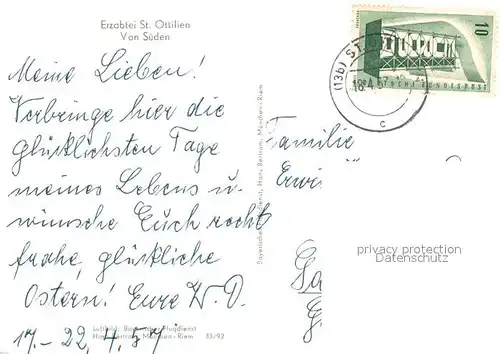 Erzabtei St. Ottilien
Von Süden
Meine Lieben!
Verbringe hier die
glücklichsten Tage
meines Lebens u.
wünsche Euch recht
frohe, glückliche
Ostern! Eure W. D.
17.-22. 4. 57
Luftbild: Bayerischer Flugdienst
Hans Bertram, München-Riem 33/92
Bayerischer Flugdienst, Hans Bertram, München-Riem
10
DEUTSCHE BUNDESPOST
(13b) ST.
18.4.57
c
Familie
privacy protection
Datenschutz